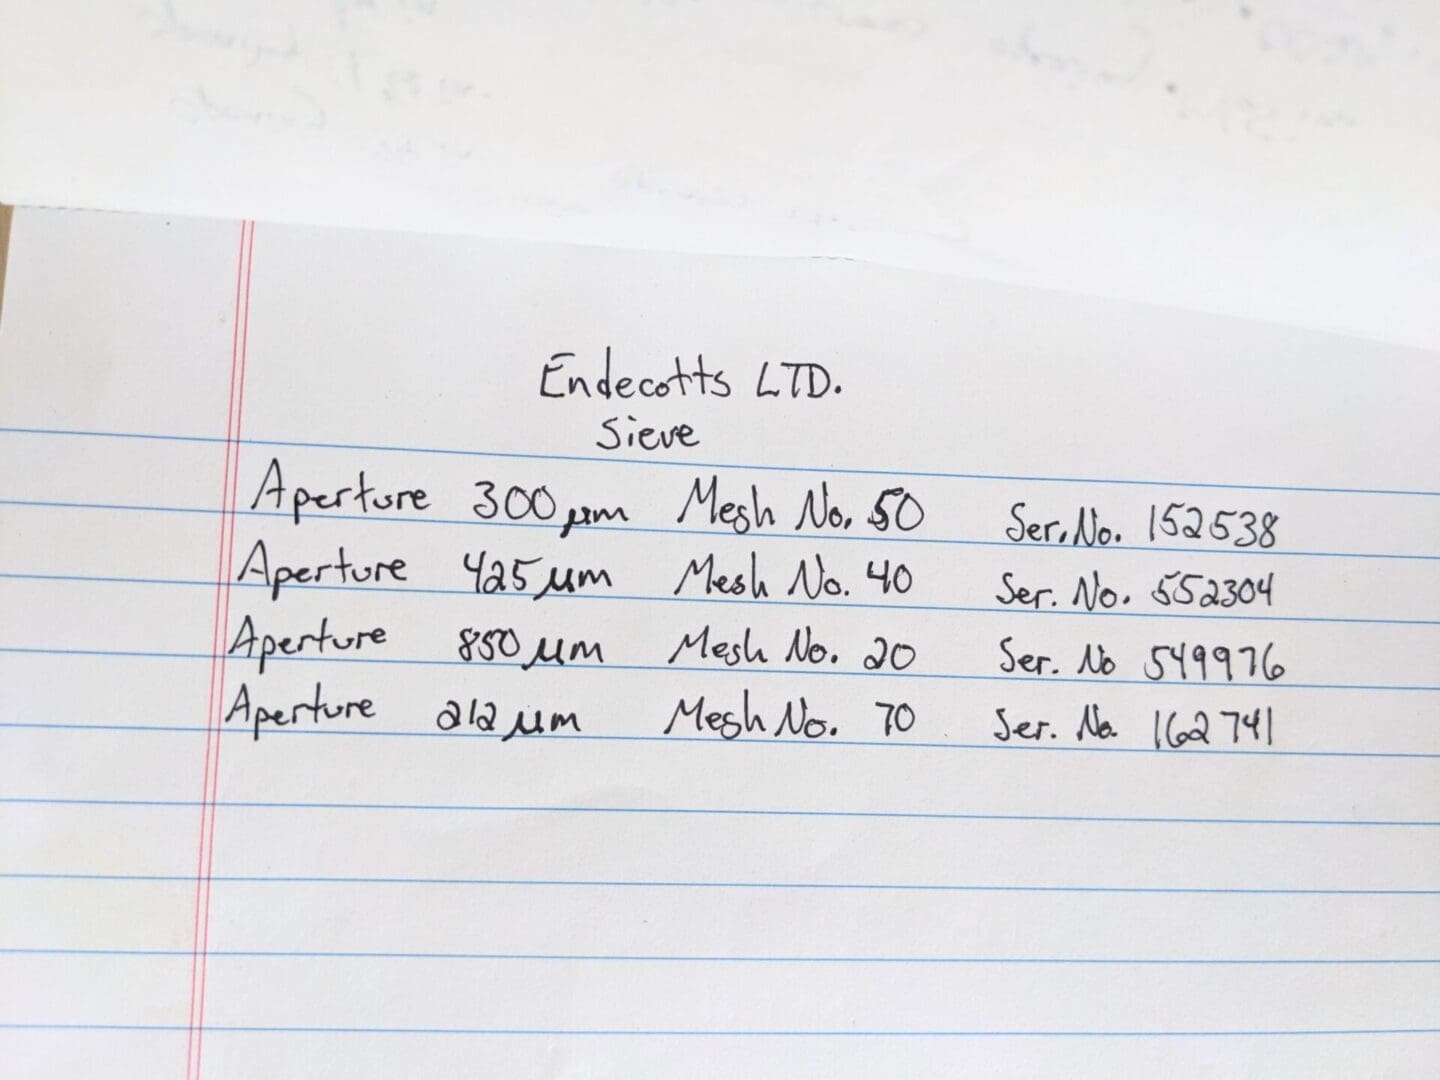 Endecotts LTD.
Sieve
Aperture 300 µm Mesh No. 50 Ser. No. 152538
Aperture 425 µm Mesh No. 40 Ser. No. 552304
Aperture 850 µm Mesh No. 20 Ser. No 549976
Aperture 212 µm Mesh No. 70 Ser. No. 162741